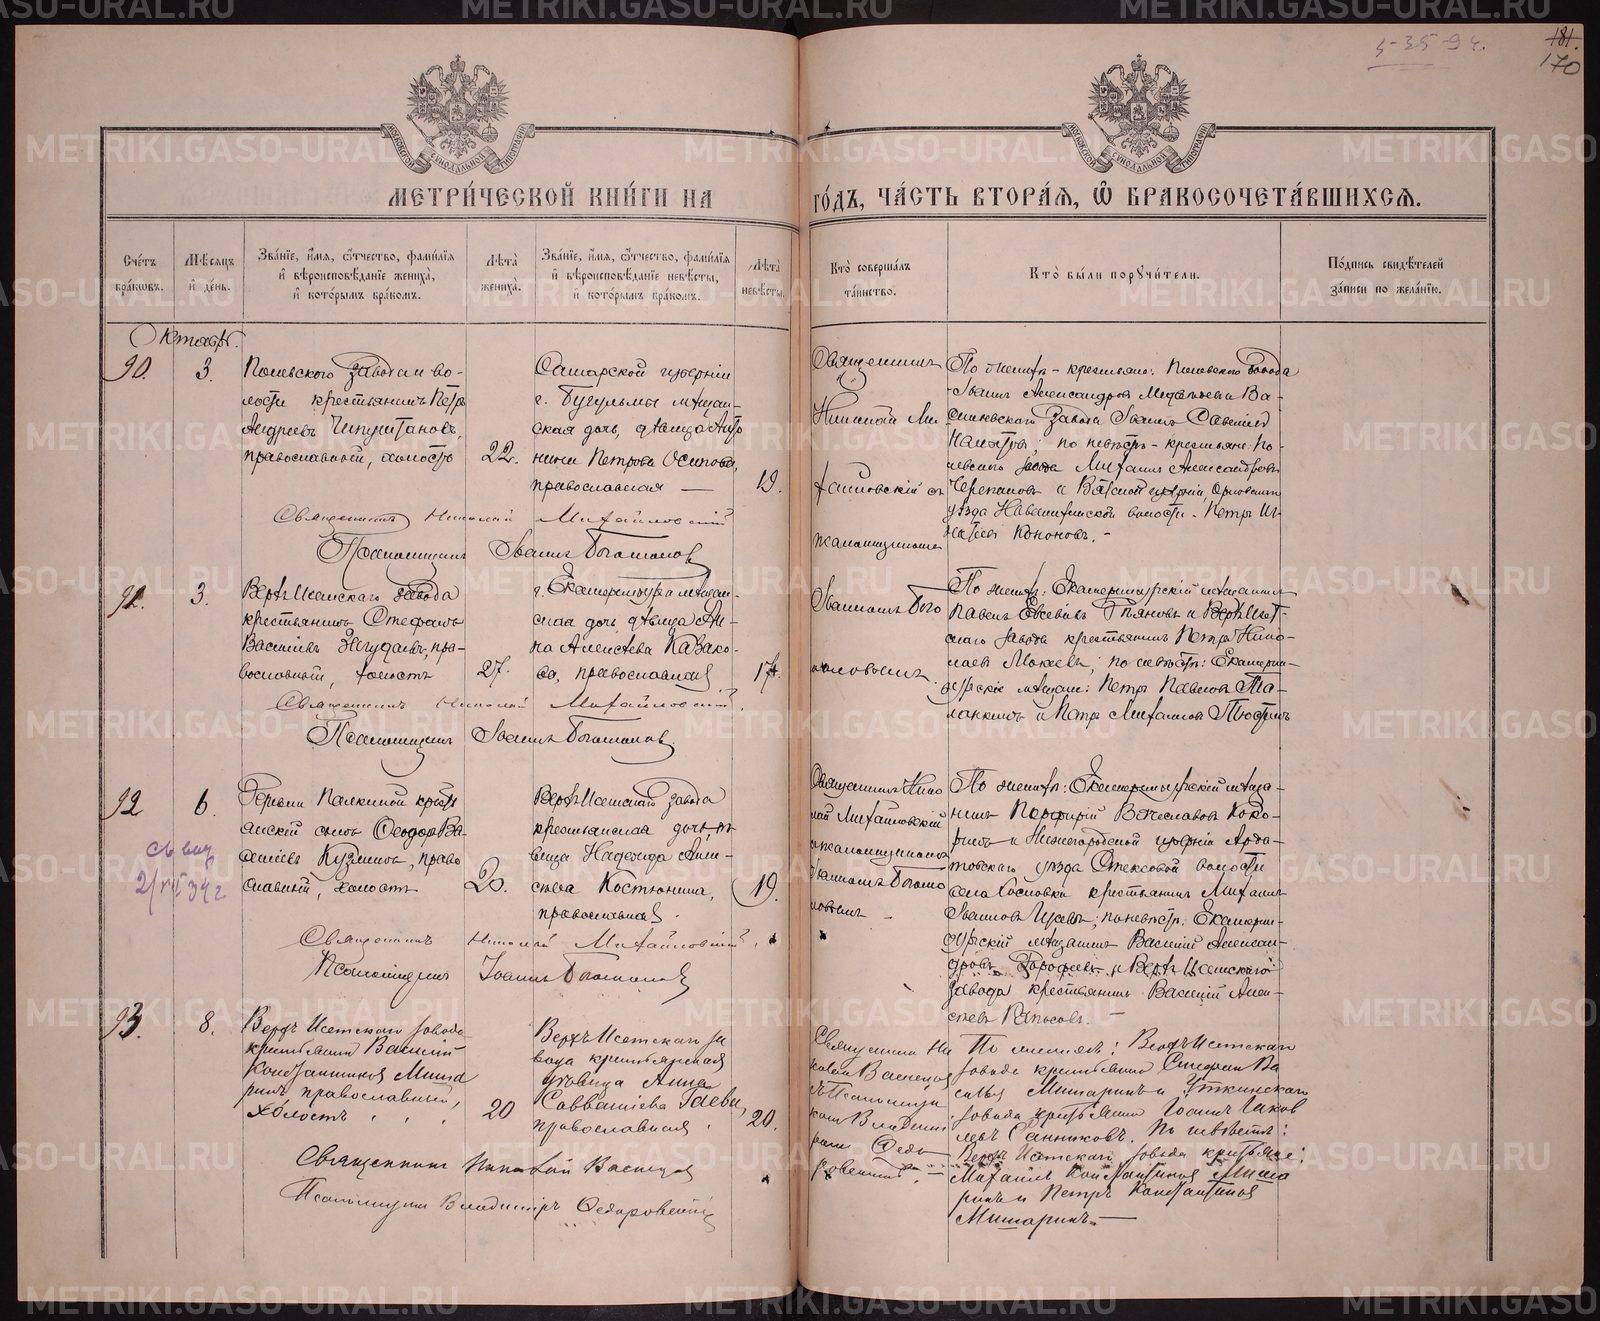 METRIKI.GASO-URAL.RU
181.
170
МЕТРИ́ЧЕСКОЙ КНИ́ГИ НА
ГО́ДЪ, ЧА́СТЬ ВТОРА́Я, Ѡ БРАКОСОЧЕТА́ВШИХСЯ.
Сче́тъ бра́ковъ.
Мѣ́сяцъ и҆ де́нь.
Зва́нїе, и҆́мя, ѻ҆́тчество, фами́лїя и҆ вѣроисповѣ́данїе жениха̀, и҆ кото́рымъ бра́комъ.
Лѣ́та жениха̀.
Зва́нїе, и҆́мя, ѻ҆́тчество, фами́лїя и҆ вѣроисповѣ́данїе невѣ́сты, и҆ кото́рымъ бра́комъ.
Лѣ́та невѣ́сты.
Кто̀ соверша́лъ та́инство.
Кто̀ бы́ли порꙋчи́тели.
По́дпись свидѣ́телей за́писи по жела́нїю.
Октябрь.
90.
3.
Полевского завода и во-
лости крестьянинъ Петръ
Андреевъ
православный, холостъ
22.
Самарской губерніи
г. Бугульмы мѣщан-
ская дочь, дѣвица Анто
нина Петрова Осипова,
православная —
19.
Священникъ
Николай Ми
хайловскій съ
псаломщикомъ
По женихѣ - крестьяне: Полевского завода
Иванъ Александровъ
завода Иванъ
по невѣстѣ - крестьяне: По-
левского завода Михаилъ Александровъ
Черепановъ и Вятской губерніи, Орловскаго
уѣзда волости - Петръ Иг-
натіевъ Кононовъ. -
Священникъ Николай Михайловскій
Псаломщикъ Іоаннъ Богомоловъ
91.
3.
Верхъ Исетскаго завода
крестьянинъ Стефанъ
Василіевъ пра-
вославный, холостъ
27.
г. Екатеринбурга мѣщан-
ская дочь дѣвица Ан-
на Алексѣева Казако-
ва, православная
17.
Іоанномъ Бого
моловымъ.
По женихѣ: Екатеринбургскій мѣщанинъ
Павелъ Евсевіевъ и Верхъ Исет-
скаго завода крестьянинъ Петръ Нико-
лаевъ Мокѣевъ; по невѣстѣ: Екатерин-
бургскіе мѣщане: Петръ Павловъ Та-
ланкинъ и Петръ Михаиловъ
Священникъ Николай Михайловскій
Псаломщикъ Іоаннъ Богомоловъ
92
6.
Деревни Палкиной кресть
янскій сынъ Ѳеодоръ Ва-
силіевъ Кузминъ, право
славный, холостъ
20.
Верхъ Исетскаго завода
крестьянская дочь, дѣ
вица Надежда Алек-
сѣева Костюнина,
православная.
19.
Священникъ Нико
лай Михайловскій
съ псаломщикомъ
Іоанномъ Богомо
ловымъ —
По женихѣ: Екатеринбургскій мѣща-
нинъ Порфирій Вячеславовъ Коко-
ринъ и Нижегородской губерніи Арда-
товскаго уѣзда Стексовой волости
села крестьянинъ Михаилъ
Іоанновъ по невѣстѣ: Екатерин-
бургскій мѣщанинъ Василій Александ-
ровъ Дорофеевъ и Верхъ Исетскаго
завода крестьянинъ Василій Алек-
сѣевъ
Священникъ Николай Михайловскій
Псаломщикъ Іоаннъ Богомоловъ
93.
8.
Верхъ Исетскаго завода
крестьянинъ Василій
Константиновъ Миша
ринъ, православный,
холостъ
20
Верхъ Исетскаго за
вода крестьянская
дѣвица Анна
Савватіева Гаева,
православная.
20.
Священникъ Ни
колай
съ Псаломщи
комъ Владими
ромъ Ѳедо
ровскимъ.
По женихѣ: Верхъ Исетскаго
завода крестьянинъ Стефанъ Ва
сильевъ Мишаринъ и Уткинскаго
завода крестьянинъ Іоаннъ Яков
левъ Санниковъ. По невѣстѣ:
Верхъ Исетскаго завода крестьяне:
Михаилъ Константиновъ Миша
ринъ и Петръ Константиновъ
Мишаринъ. —
Священникъ Николай
Псаломщикъ Владиміръ Ѳедоровскій